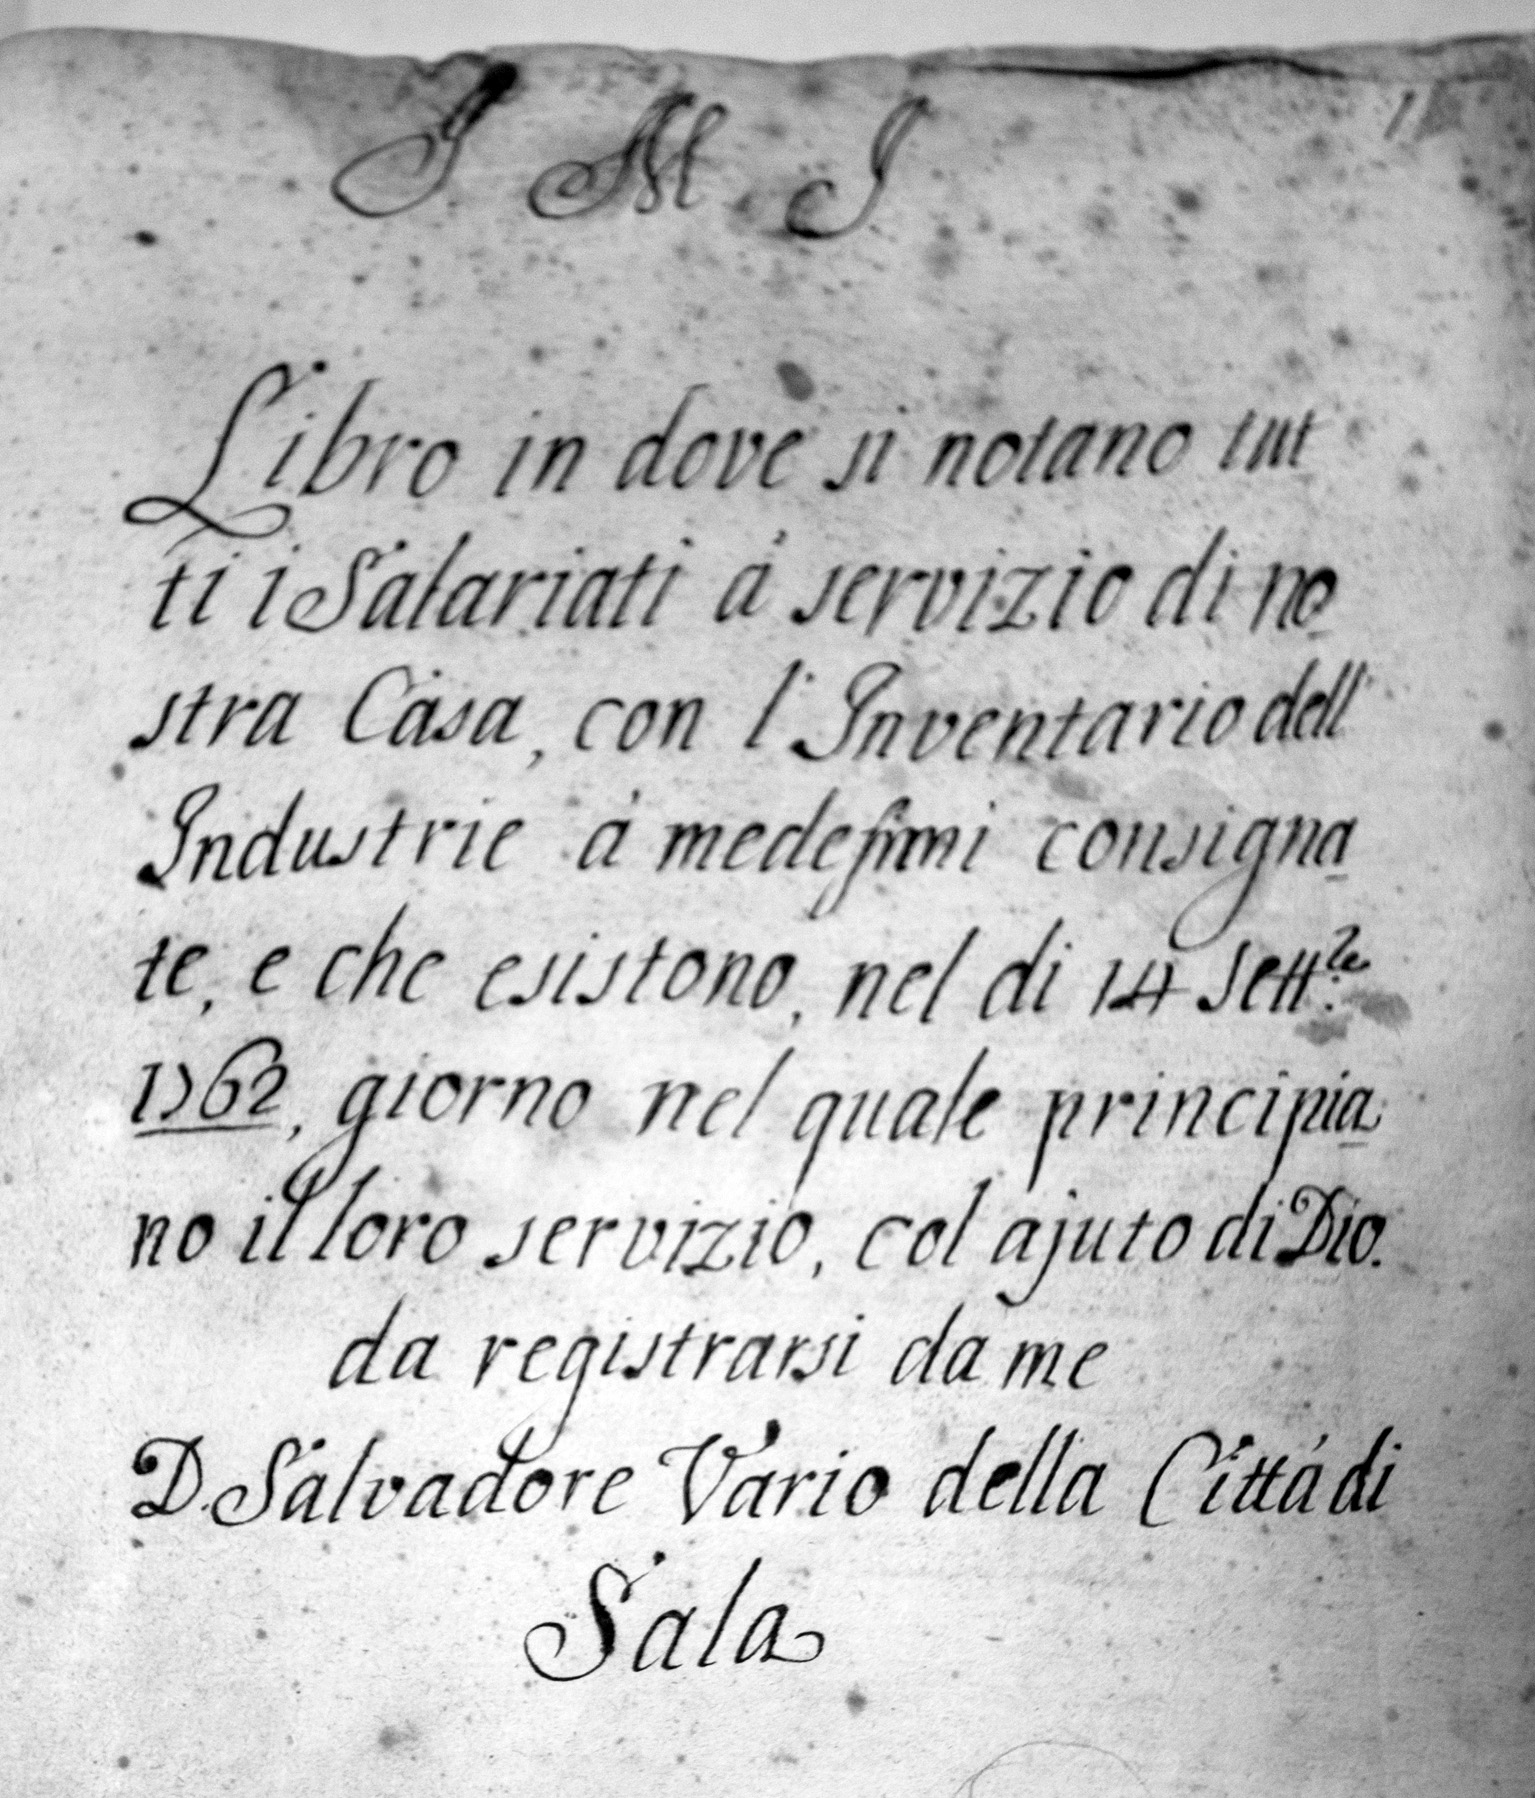 J M J
1
Libro in dove si notano tut
ti i Salariati à servizio di no
stra Casa, con l'Inventario dell'
Industrie à medesimi consigna
te, e che esistono, nel di 14 Sett.re
1762, giorno nel quale principia
no il loro servizio, col ajuto di Dio.
da registrarsi da me
D. Salvadore Vario della Città di
Sala